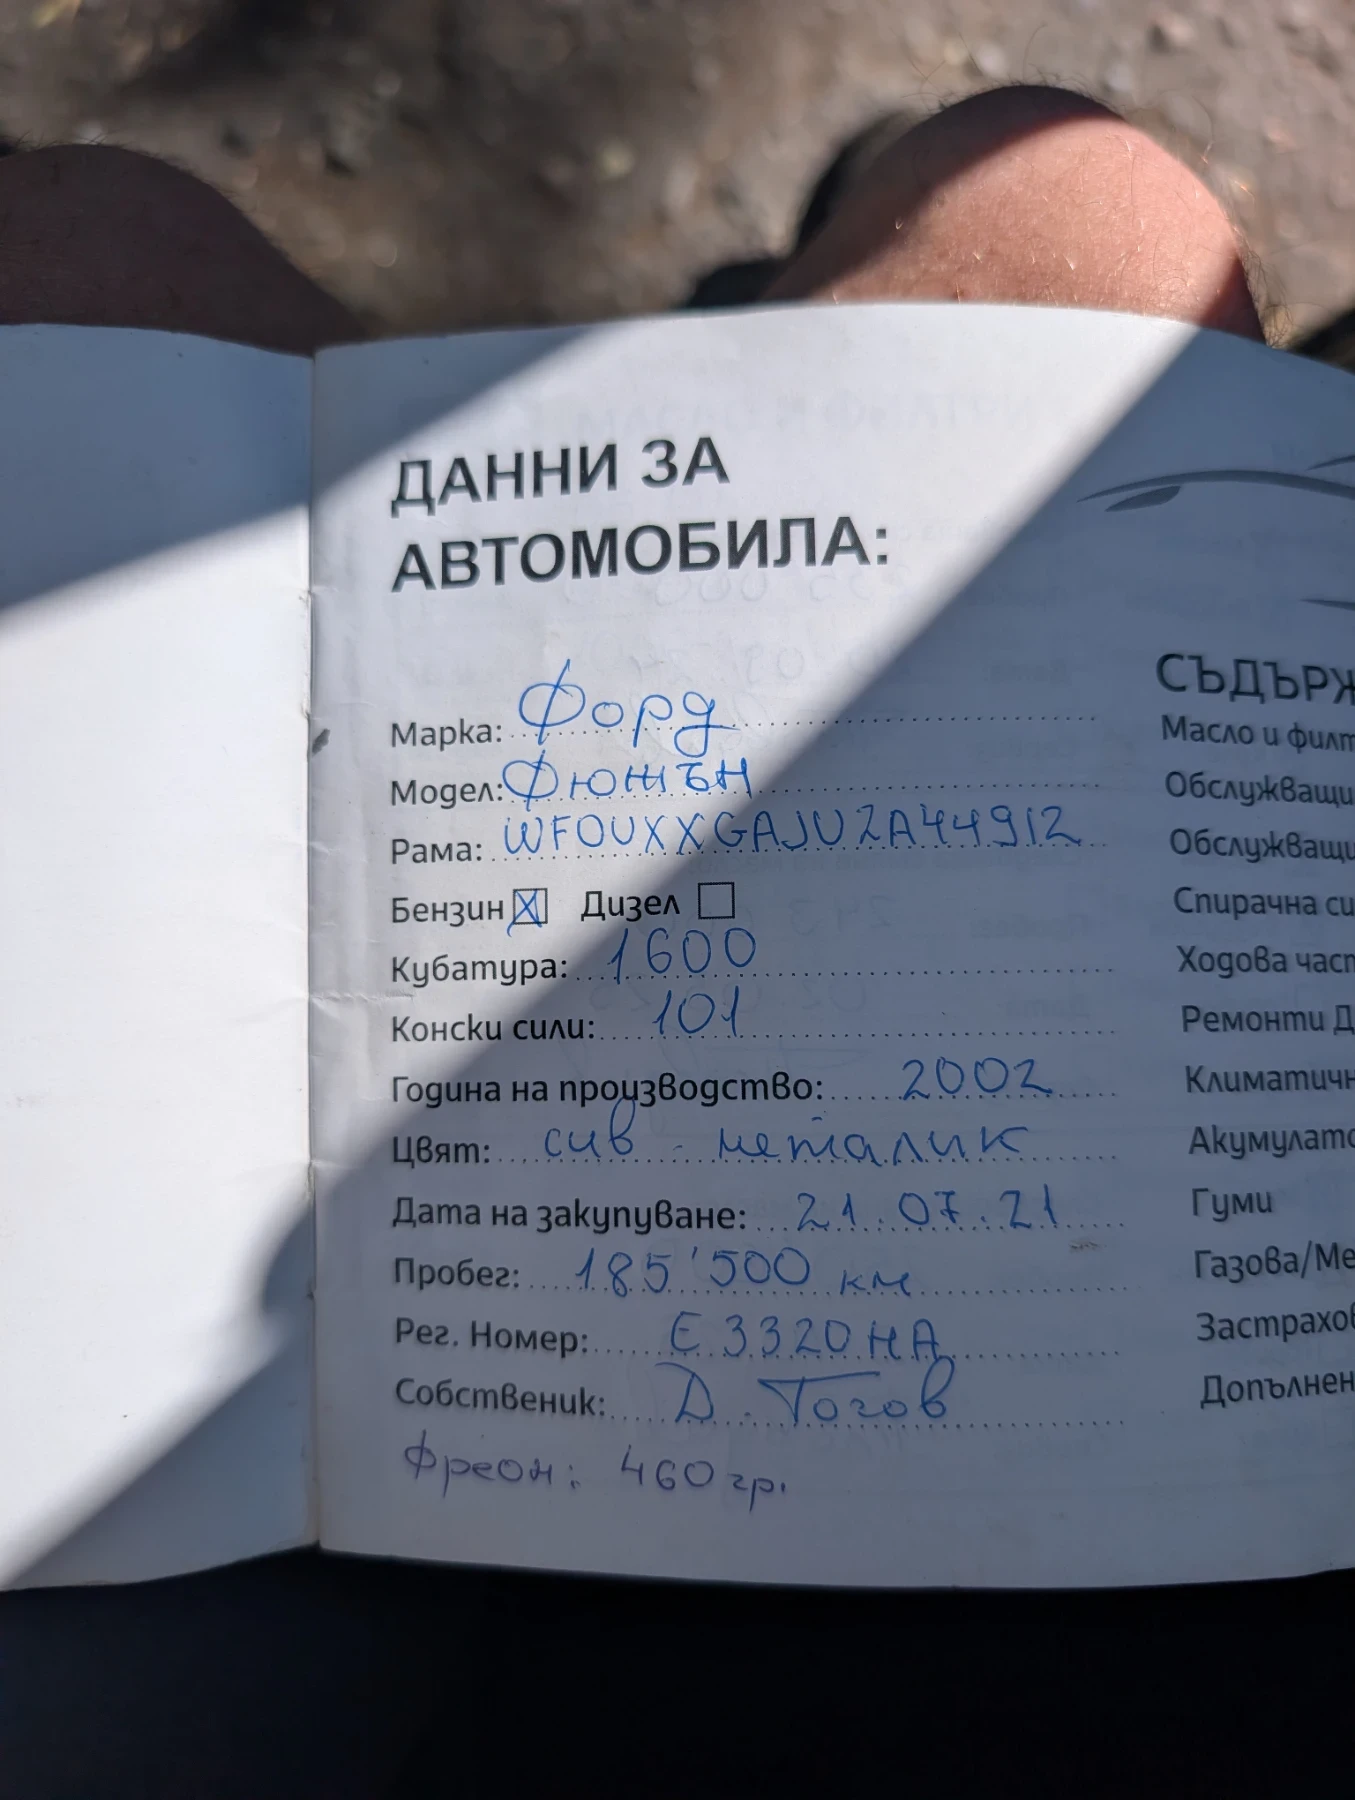 ДАННИ ЗА
АВТОМОБИЛА:
Марка: Форд
Модел: Фюжън
Рама: WF0UXXGAJU2A44912
Бензин ☒ Дизел ☐
Кубатура: 1600
Конски сили: 101
Година на производство: 2002
Цвят: сив - металик
Дата на закупуване: 21.07.21
Пробег: 185'500 км
Рег. Номер: Е3320НА
Собственик: Д. Тогов
Фреон: 460 гр.
СЪДЪРЖ
Масло и филт
Обслужващи
Обслужващи
Спирачна си
Ходова част
Ремонти Д
Климатичн
Акумулато
Гуми
Газова/Ме
Застрахов
Допълнен